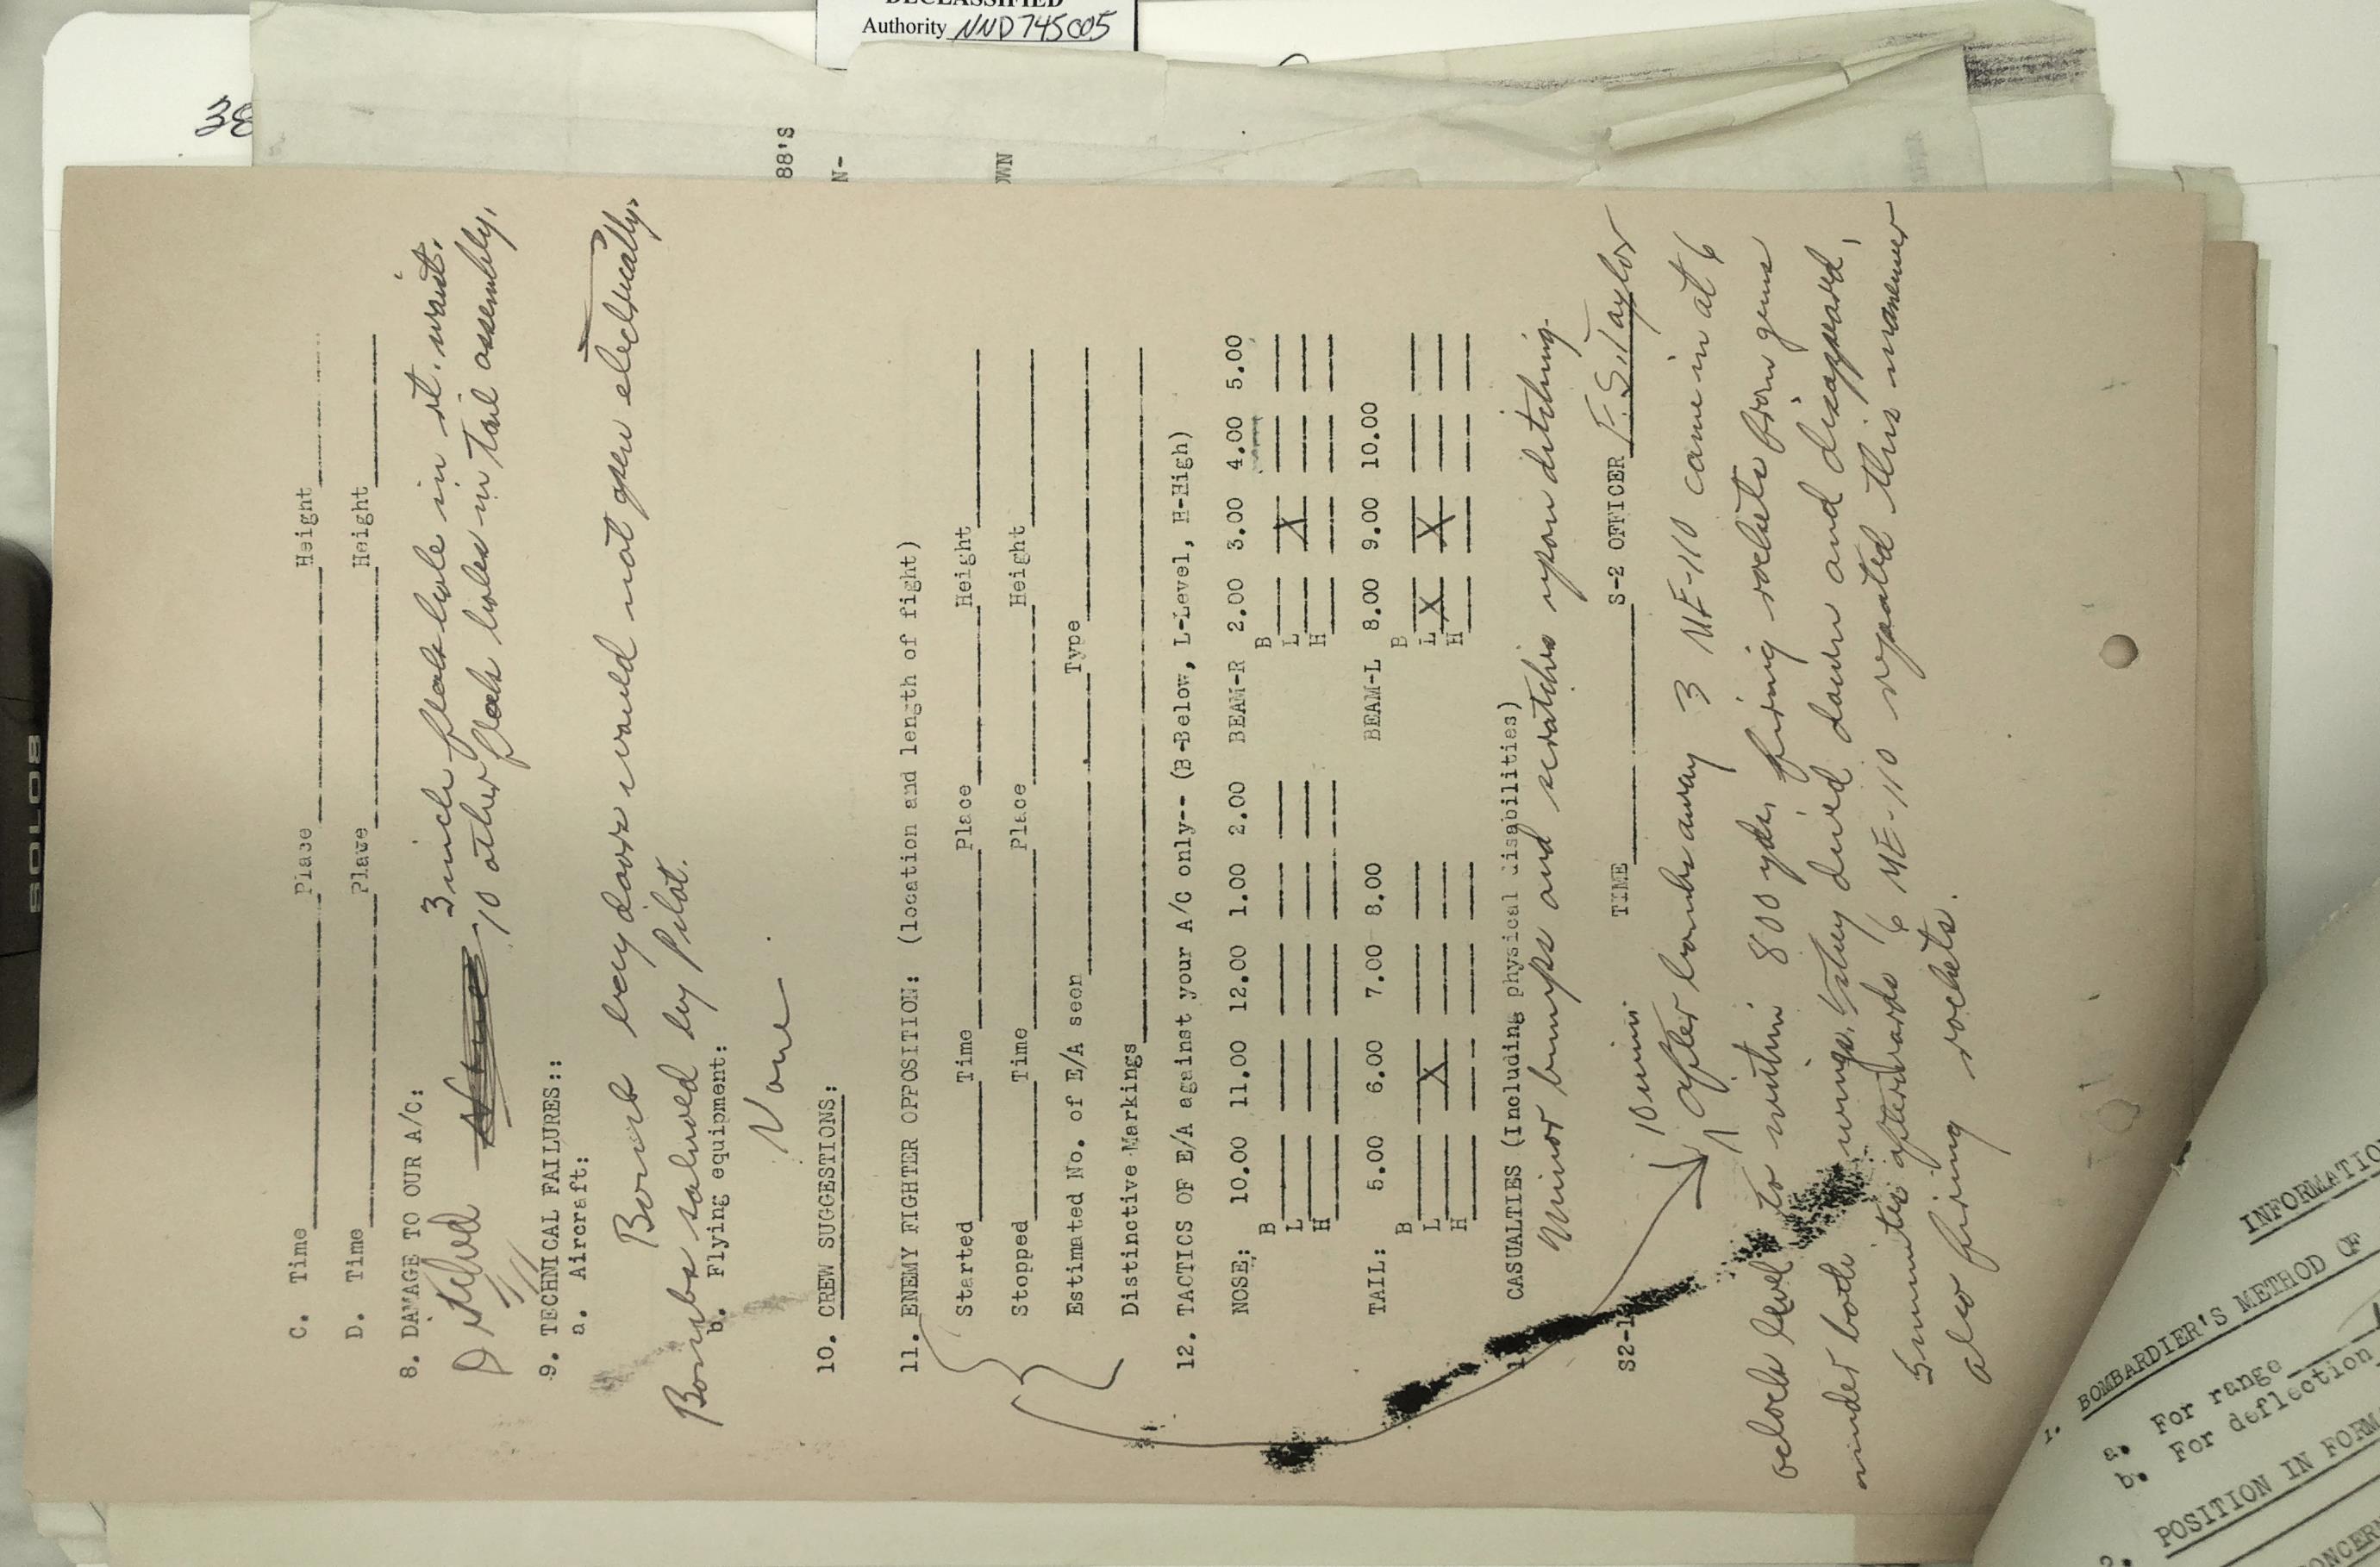 DECLASSIFIED
Authority NND 745005
38
88'S
N-
OWN
SOLO8
C. Time Place Height
D. Time Place Height
8. DAMAGE TO OUR A/C:
3 inch flak hole in rt. waist.
Ditched
10 other flak holes in tail assembly.
9. TECHNICAL FAILURES::
a. Aircraft:
Bomb bay doors would not open electrically.
Bombs salvoed by Pilot.
b. Flying equipment:
None
10. CREW SUGGESTIONS:
11. ENEMY FIGHTER OPPOSITION: (location and length of fight)
Started Time Place Height
Stopped Time Place Height
Estimated No. of E/A seen Type
Distinctive Markings
12. TACTICS OF E/A against your A/C only-- (B-Below, L-Level, H-High)
NOSE: 10.00 11.00 12.00 1.00 2.00 BEAM-R 2.00 3.00 4.00 5.00
B B
L L X
H H
TAIL: 5.00 6.00 7.00 8.00 BEAM-L 8.00 9.00 10.00
B B
L X L X X
H H
1 CASUALTIES (Including physical disabilities)
Minor bumps and scratches upon ditching.
S2-1 TIME S-2 OFFICER F.S. Taylor
10 min.
after bombs away 3 ME-110 came in at 6
oclock level to within 800 yds. firing rockets from guns
under both wings. They dived down and disappeared.
5 minutes afterwards 6 ME-110 repeated this maneuver
also firing rockets.
INFORMATIO
1. BOMBARDIER'S METHOD OF
a. For range
b. For deflection
2. POSITION IN FORMA
ONCERN